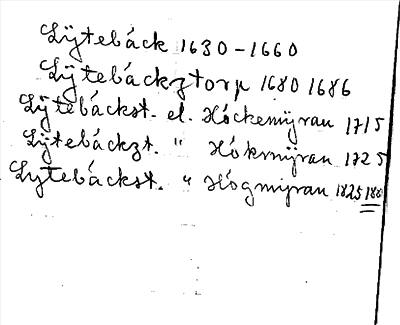 Lÿtebáck 1630-1660
Lÿtebáckztorp 1680 1686
Lÿtebáckst. el. Hóckemÿran 1715
Lÿtebáckzt. " Hókmÿran 1725
Lytebáckst. " Hógmÿran 1825